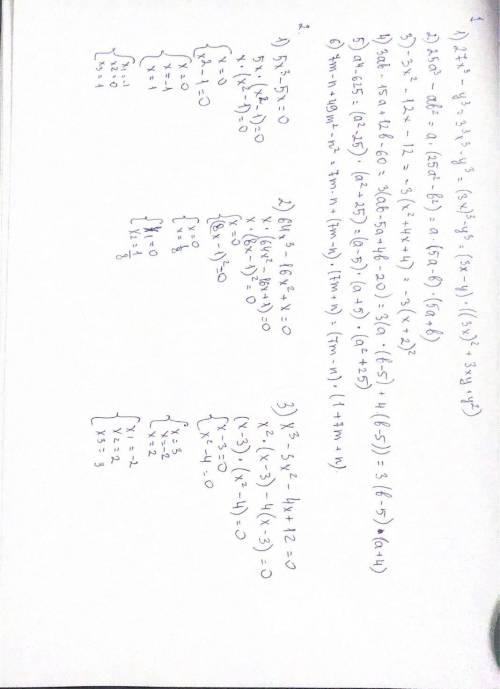 1
1) 27x³-y³=3³x³-y³=(3x)³-y³=(3x-y)·((3x)²+3xy+y²)
2) 25a³-ab²=a·(25a²-b²)=a·(5a-b)·(5a+b)
3) -3x²-12x-12=-3(x²+4x+4)=-3(x+2)²
4) 3ab-15a+12b-60=3(ab-5a+4b-20)=3(a·(b-5)+4(b-5))=3(b-5)·(a+4)
5) a⁴-625=(a²-25)·(a²+25)=(a-5)·(a+5)·(a²+25)
6) 7m-n+49m²-n²=7m-n+(7m-n)·(7m+n)=(7m-n)·(1+7m+n).
2.
1) 5x³-5x=0
5x·(x²-1)=0
x·(x²-1)=0
{x=0
x²-1=0
{x=0
x=-1
x=1
{x1=-1
x2=0
x3=1
2) 64x³-16x²+x=0
x·(64x²-16x+1)=0
x·(8x-1)²=0
{x=0
(8x-1)²=0
{x=0
x=1/8
{x1=0
x2=1/8
3) x³-3x²-4x+12=0
x²·(x-3)-4(x-3)=0
(x-3)·(x²-4)=0
{x-3=0
x²-4=0
{x=3
x=-2
x=2
{x1=-2
x2=2
x3=3